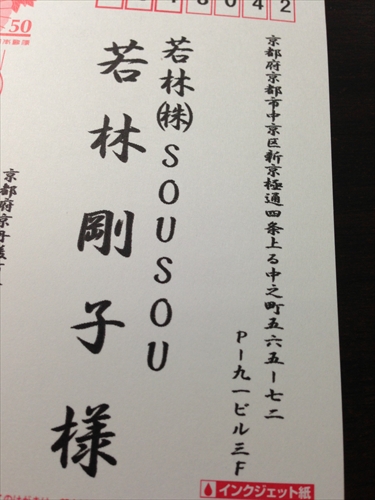 8042
京都府京都市中京区新京極通四条上る中之町五六五ー七二
Pー九一ビル三F
若林㈱SOUSOU
若林剛子様
50
京都府京丹後
インクジェット紙